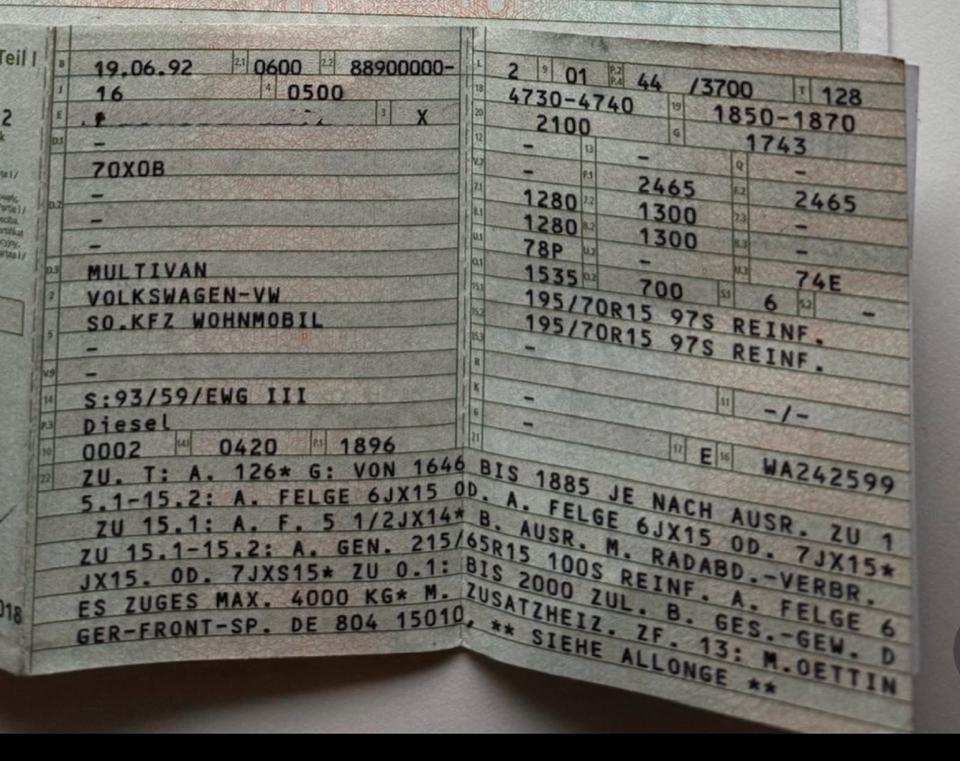 Teil I
B 19.06.92 2.1 0600 2.2 88900000-
J 16 4 0500
E 3 X
D.1 -
70X0B
-
D.2 -
-
D.3 MULTIVAN
2 VOLKSWAGEN-VW
5 SO.KFZ WOHNMOBIL
-
V.9 -
14 S:93/59/EWG III
P.3 Diesel
10 0002 14.1 0420 P.1 1896
L 2 9 01 P.2 P.4 44 /3700 T 128
18 4730-4740 19 1850-1870
20 2100 G 1743
12 - 13 - Q -
V.7 - F.1 2465 F.2 2465
7.1 1280 7.2 1300 7.3 -
8.1 1280 8.2 1300 8.3 -
U.1 78P U.2 - U.3 74E
O.1 1535 O.2 700 S.1 6 S.2 -
15.1 195/70R15 97S REINF.
15.2 195/70R15 97S REINF.
15.3 -
R
K - 11 -/-
6 -
21 17 E 16 WA242599
22 ZU. T: A. 126* G: VON 1646 BIS 1885 JE NACH AUSR. ZU 1
5.1-15.2: A. FELGE 6JX15 OD. A. FELGE 6JX15 OD. 7JX15*
ZU 15.1: A. F. 5 1/2JX14* B. AUSR. M. RADABD.-VERBR.
ZU 15.1-15.2: A. GEN. 215/65R15 100S REINF. A. FELGE 6
JX15. OD. 7JXS15* ZU 0.1: BIS 2000 ZUL. B. GES.-GEW. D
ES ZUGES MAX. 4000 KG* M. ZUSATZHEIZ. ZF. 13: M.OETTIN
GER-FRONT-SP. DE 804 15010, ** SIEHE ALLONGE **